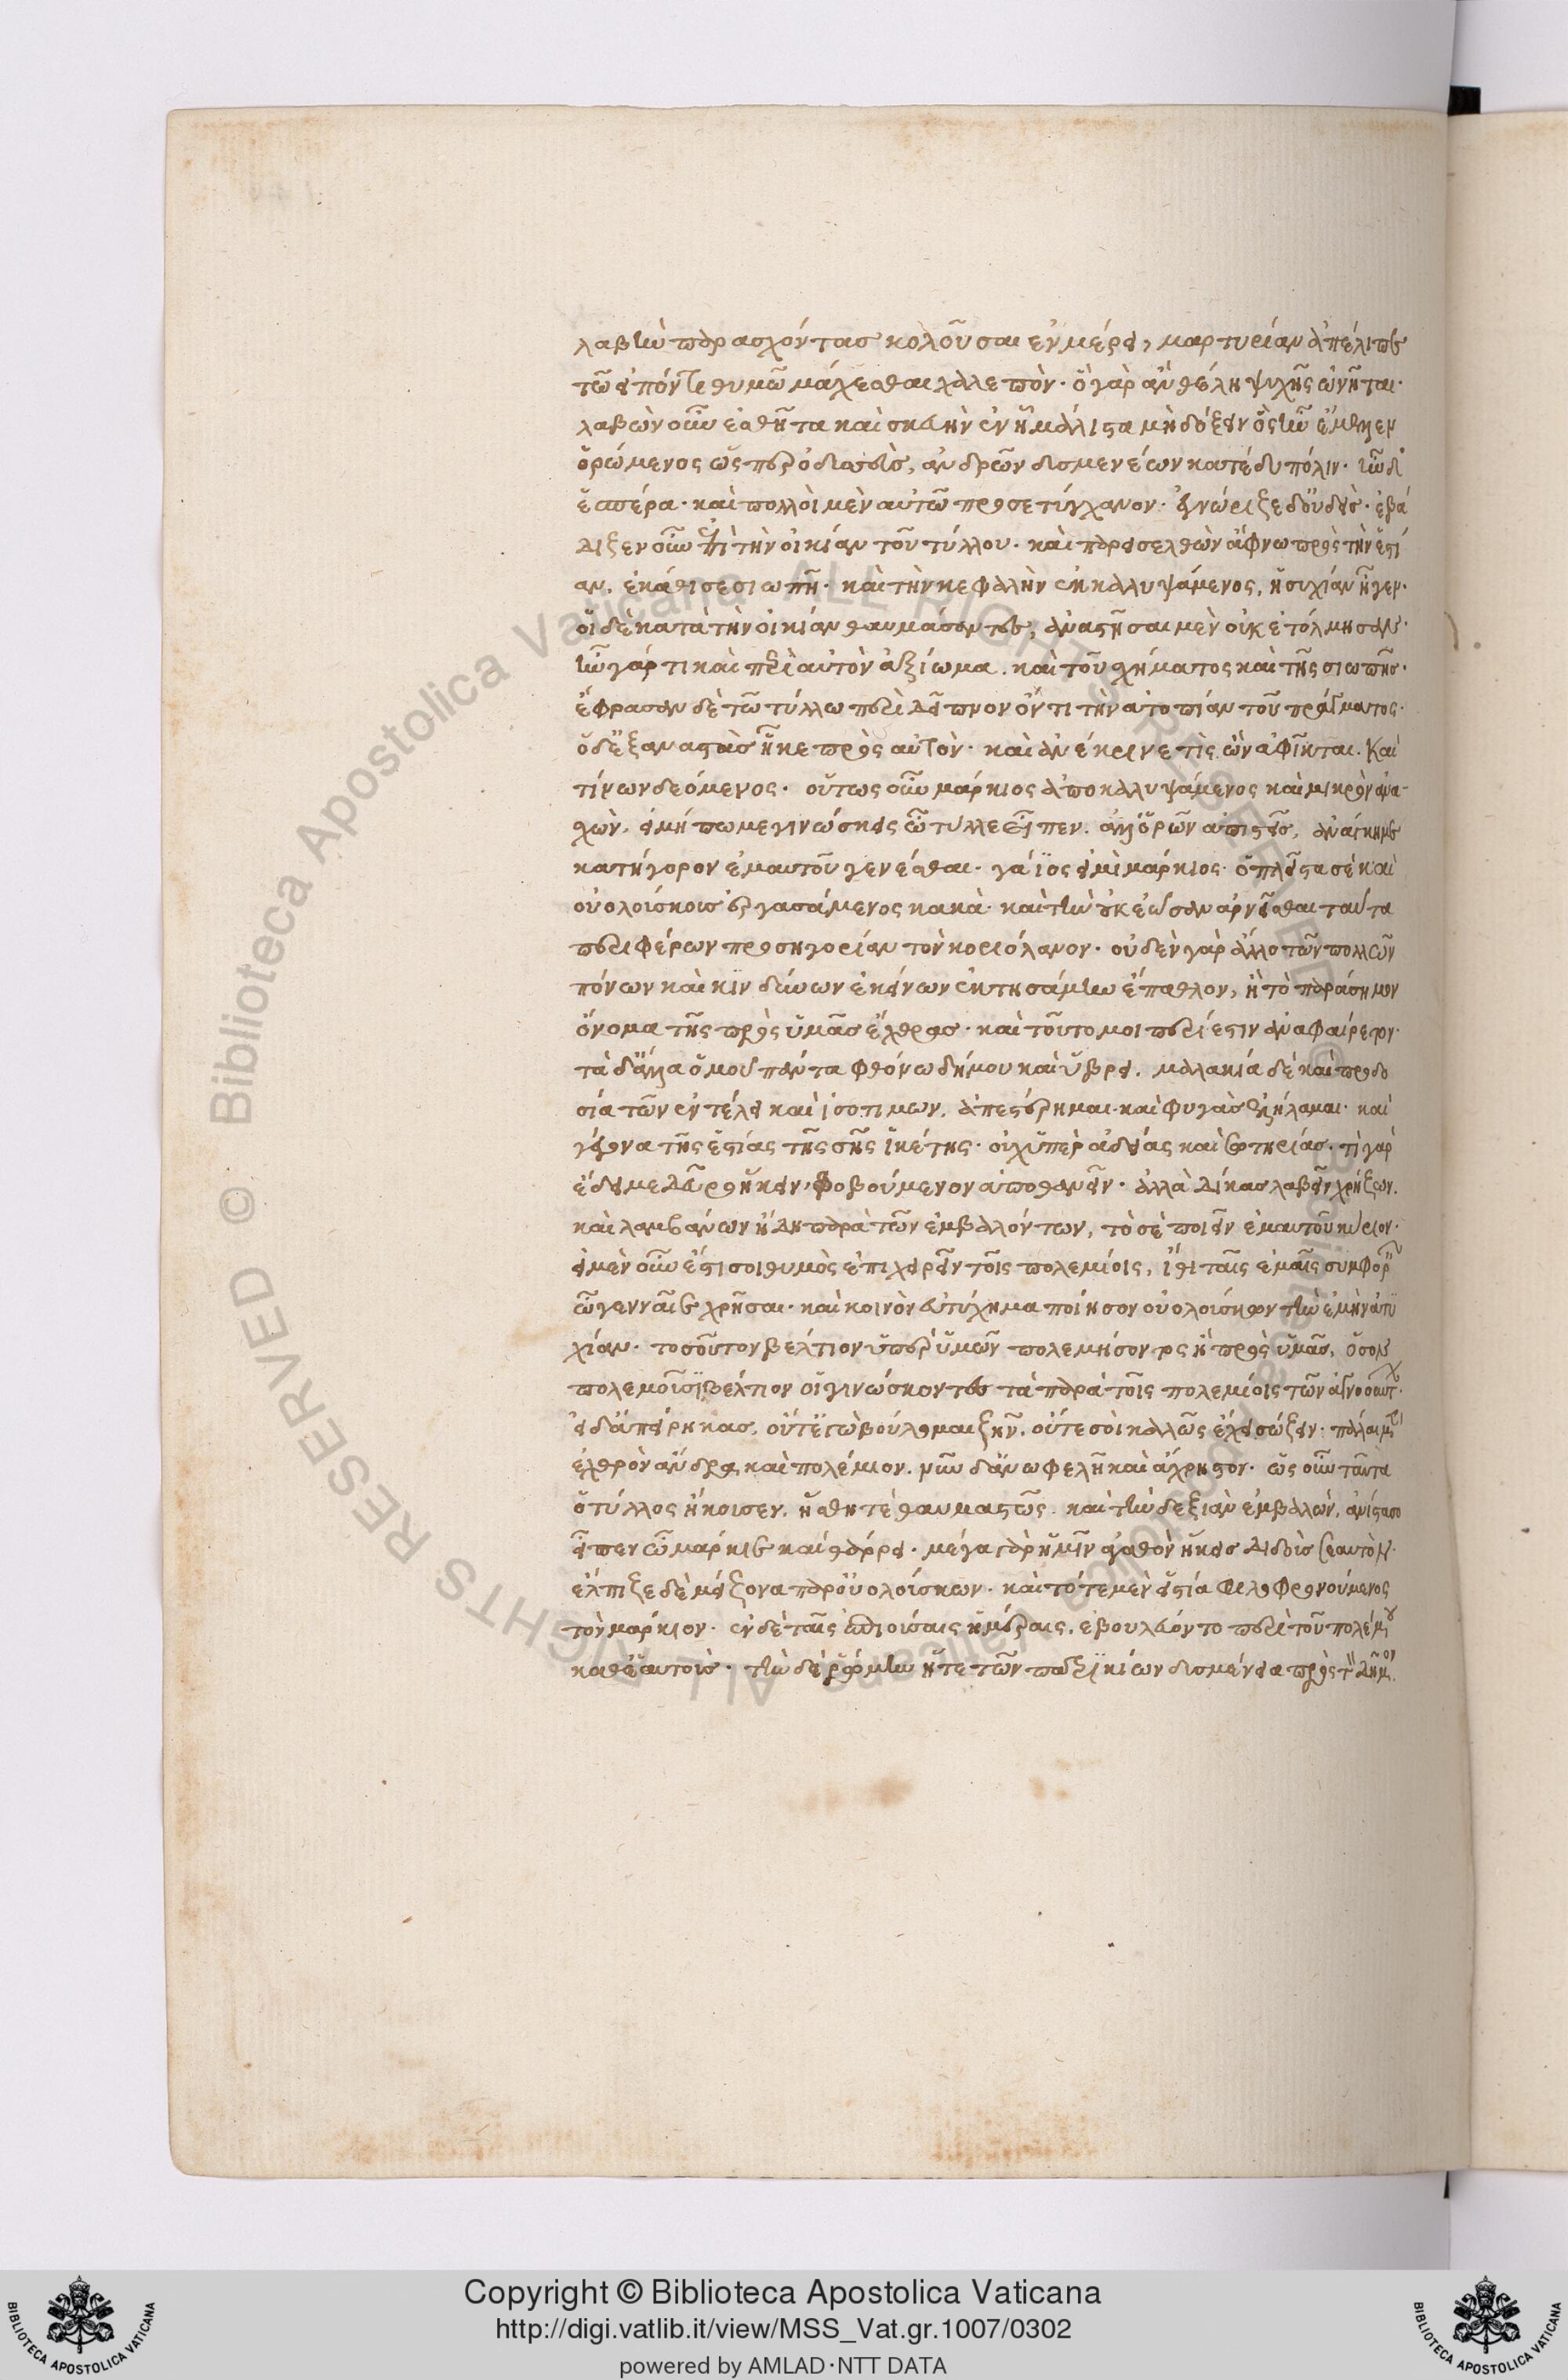 λαβὴν παρασχόντας κολοῦσαι ἐν μέρει, μαρτυρίαν ἀπέλιπε
τῶ εἰπόντι θυμῶ μάχεσθαι χαλεπὸν· ὃ γὰρ ἂν θέλη ψυχῆς ὠνῆται·
λαβὼν οὖν ἐσθῆτα καὶ σκευὴν ἐν ἧ μάλιστα μὴ δόξειν ὃς ἦν ἔμελλεν
ὁρώμενος ὥσπερ ὀδυσσεὺς, ἀνδρῶν δυσμενέων κατέδυ πόλιν· ἦν δὲ
ἑσπέρα· καὶ πολλοὶ μὲν αὐτῶ προσετύγχανον· ἐγνώριζε δ' οὐδεὶς· ἐβά
διζεν οὖν ἐπὶ τὴν οἰκίαν τοῦ τύλλου· καὶ παρεισελθὼν ἄφνω πρὸς τὴν ἑστί
αν, ἐκάθισε σιωπῆ· καὶ τὴν κεφαλὴν ἐγκαλυψάμενος, ἡσυχίαν ἦγεν·
οἱ δὲ κατὰ τὴν οἰκίαν θαυμάσαντες, ἀναστῆσαι μὲν οὐκ ἐτόλμησαν·
ἦν γάρ τι καὶ περὶ αὐτὸν ἀξίωμα, καὶ τοῦ σχήματος καὶ τῆς σιωπῆς·
ἔφρασαν δὲ τῶ τύλλω περὶ δεῖπνον ὄντι τὴν ἀτοπίαν τοῦ πράγματος·
ὁ δ' ἐξαναστὰς ἧκε πρὸς αὐτὸν· καὶ ἀνέκρινε τίς ὢν ἀφῖκται. Καὶ
τίνων δεόμενος· οὕτως οὖν μάρκιος ἀποκαλυψάμενος καὶ μικρὸν ἀνα-
σχὼν, εἰ μή πω με γινώσκεις ὦ τύλλε εἶπεν, ἀλλ' ὁρῶν ἀπιστεῖς, ἀνάγκη με
κατήγορον ἐμαυτοῦ γενέσθαι· γάϊος εἰμὶ μάρκιος· ὁ πλεῖστα σὲ καὶ
οὐολούσκους ἐργασάμενος κακὰ· καὶ τὴν οὐκ ἐῶσαν ἀρνεῖσθαι ταῦτα
περιφέρων προσηγορίαν τὸν κοριόλανον· οὐδὲν γὰρ ἄλλο τῶν πολλῶν
πόνων καὶ κινδύνων ἐκείνων ἐκτησάμην ἔπαθλον, ἢ τὸ παράσημον
ὄνομα τῆς πρὸς ὑμᾶς ἔχθρας· καὶ τοῦτό μοι περίεστιν ἀναφαίρετον·
τὰ δ' ἄλλα ὁμοῦ πάντα φθόνω δήμου καὶ ὕβρει, μαλακία δὲ καὶ προδο
σία τῶν ἐν τέλει καὶ ἰσοτίμων, ἀπεστέρημαι· καὶ φυγὰς ἐξελήλαμαι· καὶ
γέγονα τῆς ἑστίας τῆς σῆς ἱκέτης· οὐχ ὑπὲρ ἀδείας καὶ σωτηρίας· τί γὰρ
ἔδει με δεῦρο ἥκειν, φοβούμενον ἀποθανεῖν· ἀλλὰ δίκας λαβεῖν χρήζων,
καὶ λαμβάνων ἤδη παρὰ τῶν ἐμβαλόντων, τὸ σὲ ποιεῖν ἐμαυτοῦ κύριον·
εἰ μὲν οὖν ἔστι σοι θυμὸς ἐπιχειρεῖν τοῖς πολεμίοις, ἴθι ταῖς ἐμαῖς συμφοραῖς
ὦ γενναῖε χρῆσαι· καὶ κοινὸν εὐτύχημα ποίησον οὐολούσκων τὴν ἐμὴν ἀτυ
χίαν· τοσοῦτον βέλτιον ὑπὲρ ὑμῶν πολεμήσοντος ἢ πρὸς ὑμᾶς, ὅσον
πολεμοῦσι βέλτιον οἱ γινώσκοντες τὰ παρὰ τοῖς πολεμίοις τῶν ἀγνοούντων·
εἰ δ' ἀπείρηκας, οὔτ' ἐγὼ βούλομαι ζῆν, οὔτε σοὶ καλῶς ἔχει σώζειν· πάλαι μὲν
ἐχθρὸν ἄνδρα καὶ πολέμιον, νῦν δ' ἀνωφελῆ καὶ ἄχρηστον· ὡς οὖν ταῦτα
ὁ τύλλος ἤκουσεν, ἥσθη τὲ θαυμαστῶς· καὶ τὴν δεξιὰν ἐμβαλὼν, ἀνίστασο
εἶπεν ὦ μάρκιε καὶ θάρρει· μέγα γὰρ ἡμῖν ἀγαθὸν ἥκεις διδοὺς σεαυτὸν·
ἔλπιζε δὲ μείζονα παρ' οὐολούσκων· καὶ τότε μὲν εἱστία φιλοφρονούμενος
τὸν μάρκιον· ἐν δὲ ταῖς ἐπιούσαις ἡμέραις, ἐβουλεύοντο περὶ τοῦ πολέμου
καθ' ἑαυτοὺς· τὴν δὲ ῥώμην ἥ τε τῶν πατρικίων δυσμένεια πρὸς τὸν δῆμον
Copyright © Biblioteca Apostolica Vaticana
http://digi.vatlib.it/view/MSS_Vat.gr.1007/0302
powered by AMLAD·NTT DATA
BIBLIOTECA APOSTOLICA VATICANA
BIBLIOTECA APOSTOLICA VATICANA
© Biblioteca Apostolica Vaticana ALL RIGHTS RESERVED
© Biblioteca Apostolica Vaticana ALL RIGHTS RESERVED